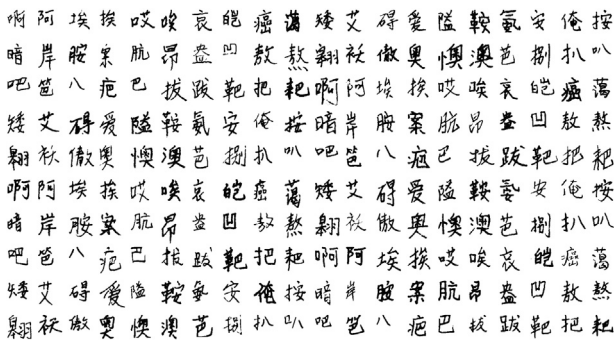 啊阿埃挨哎唉哀皑癌蔼矮艾碍爱隘鞍氨安俺按
暗岸胺案肮昂盎凹敖熬翱袄傲奥懊澳芭捌扒叭
吧笆八疤巴拔跋靶把耙啊阿埃挨哎唉哀皑癌蔼
矮艾碍爱隘鞍氨安俺按暗岸胺案肮昂盎凹敖熬
翱袄傲奥懊澳芭捌扒叭吧笆八疤巴拔跋靶把耙
啊阿埃挨哎唉哀皑癌蔼矮艾碍爱隘鞍氨安俺按
暗岸胺案肮昂盎凹敖熬翱袄傲奥懊澳芭捌扒叭
吧笆八疤巴拔跋靶把耙啊阿埃挨哎唉哀皑癌蔼
矮艾碍爱隘鞍氨安俺按暗岸胺案肮昂盎凹敖熬
翱袄傲奥懊澳芭捌扒叭吧笆八疤巴拔跋靶把耙